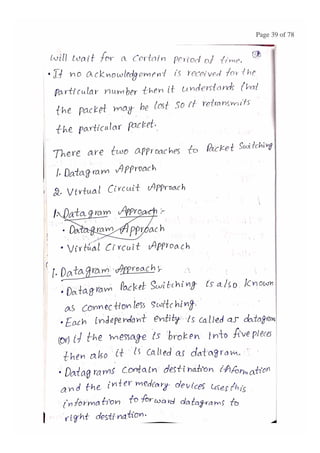 Page 39 of 78
will wait for a certain period of time.
• If no acknowledgement is received for the
particular number then it understands that
the packet may be lost so it retransmits
the particular packet.
There are two approaches to Packet Switching
1. Datagram Approach
2. Virtual Circuit Approach
1. Datagram Approach :-
• Datagram Approach
• Virtual Circuit Approach
1. Datagram Approach :-
• Datagram Packet Switching is also known
as connectionless switching.
• Each independant entity is called as datagram
(or) if the message is broken into five pieces
then also it is called as datagram.
• Datagrams contain destination information
and the intermediary devices uses this
information to forward datagrams to
right destination.